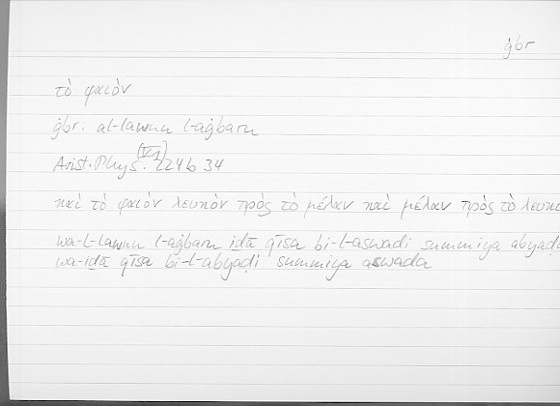 ġbr
τὸ φαιόν
ġbr: al-lawnu l-aġbaru
(V 1)
Arist. Phys. 224b 34
καὶ τὸ φαιὸν λευκὸν πρὸς τὸ μέλαν καὶ μέλαν πρὸς τὸ λευκό
wa-l-lawnu l-aġbaru iḏā qīsa bi-l-aswadi summiya abyaḍ
wa-iḏā qīsa bi-l-abyaḍi summiya aswada